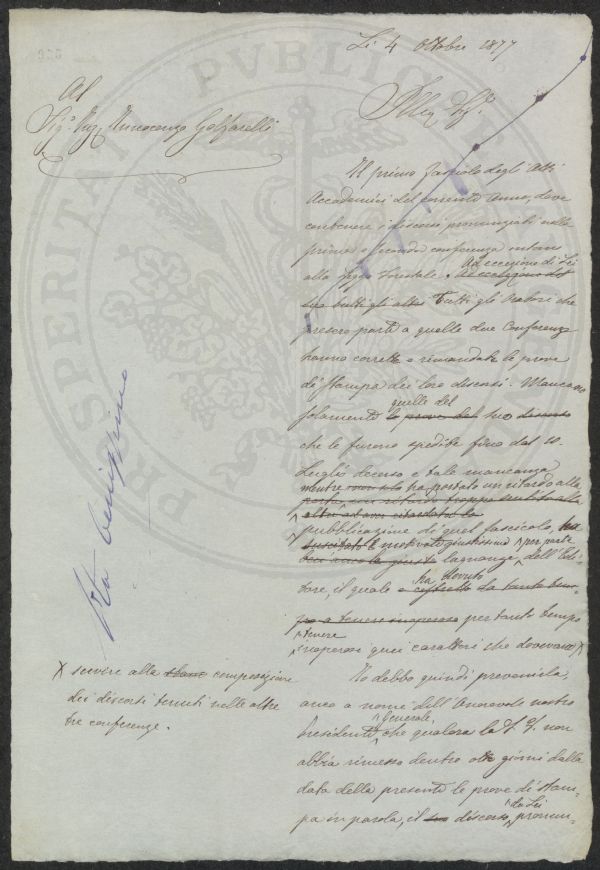 Li 4 Ottobre 1877
Al
Sig.r Ing. Innocenzo Golfarelli
Ill.mo Sig.
Il primo fascicolo degli Atti
Accademici del corrente anno, deve
contenere i discorsi pronunziati nella
prima e seconda conferenza intorno
alla legge forestale. Ad eccezione di Lei
tutti gli altri Tutti gli Oratori che
presero parte a quelle due Conferenze
hanno corrette e rimandate le prove
di stampa dei loro discorsi. Mancano
solamente quelle del
le prove del suo discorso
che le furono spedite fino dal 10
Luglio decorso e tale mancanza
mentre non solo ha portato un ritardo alla
pubblicazione di quel fascicolo, ha
suscitato motivate giustissime per parte
lagnanze dell'Edi-
tore, il quale ha dovuto
e costretto da tanto tem-
po a tenere inoperosi per tanto tempo
tenere
inoperosi quei caratteri che dovevano X
X servire alla composizione
dei discorsi tenuti nelle altre
tre conferenze.
Io debbo quindi prevenirla,
anco a nome dell'Onorevole nostro
Presidente generale che qualora la S. V. non
abbia rimesso dentro otto giorni dalla
data della presente le prove di stam-
pa in parola, il suo discorso da Lei pronun-
PROSPERITATI PVBLICAE